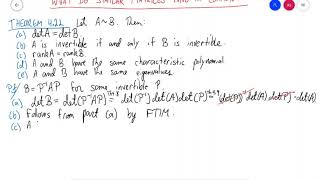 WHAT DO SIMILAR MATRICES HAVE IN COMMON
THEOREM 4.22 Let A~B. Then:
(a) detA = detB
(b) A is invertible if and only if B is invertible.
(c) rankA = rankB
(d) A and B have the same characteristic polynomial
(e) A and B have the same eigenvalues.
Pf/ B = P⁻¹AP for some invertible P.
(a) det B = det(P⁻¹AP) = det(P⁻¹) det(A) det(P) = det(P)⁻¹ det(A) det(P) = det(A)
(b) Follows from part (a) by FTIM.
(c) A =